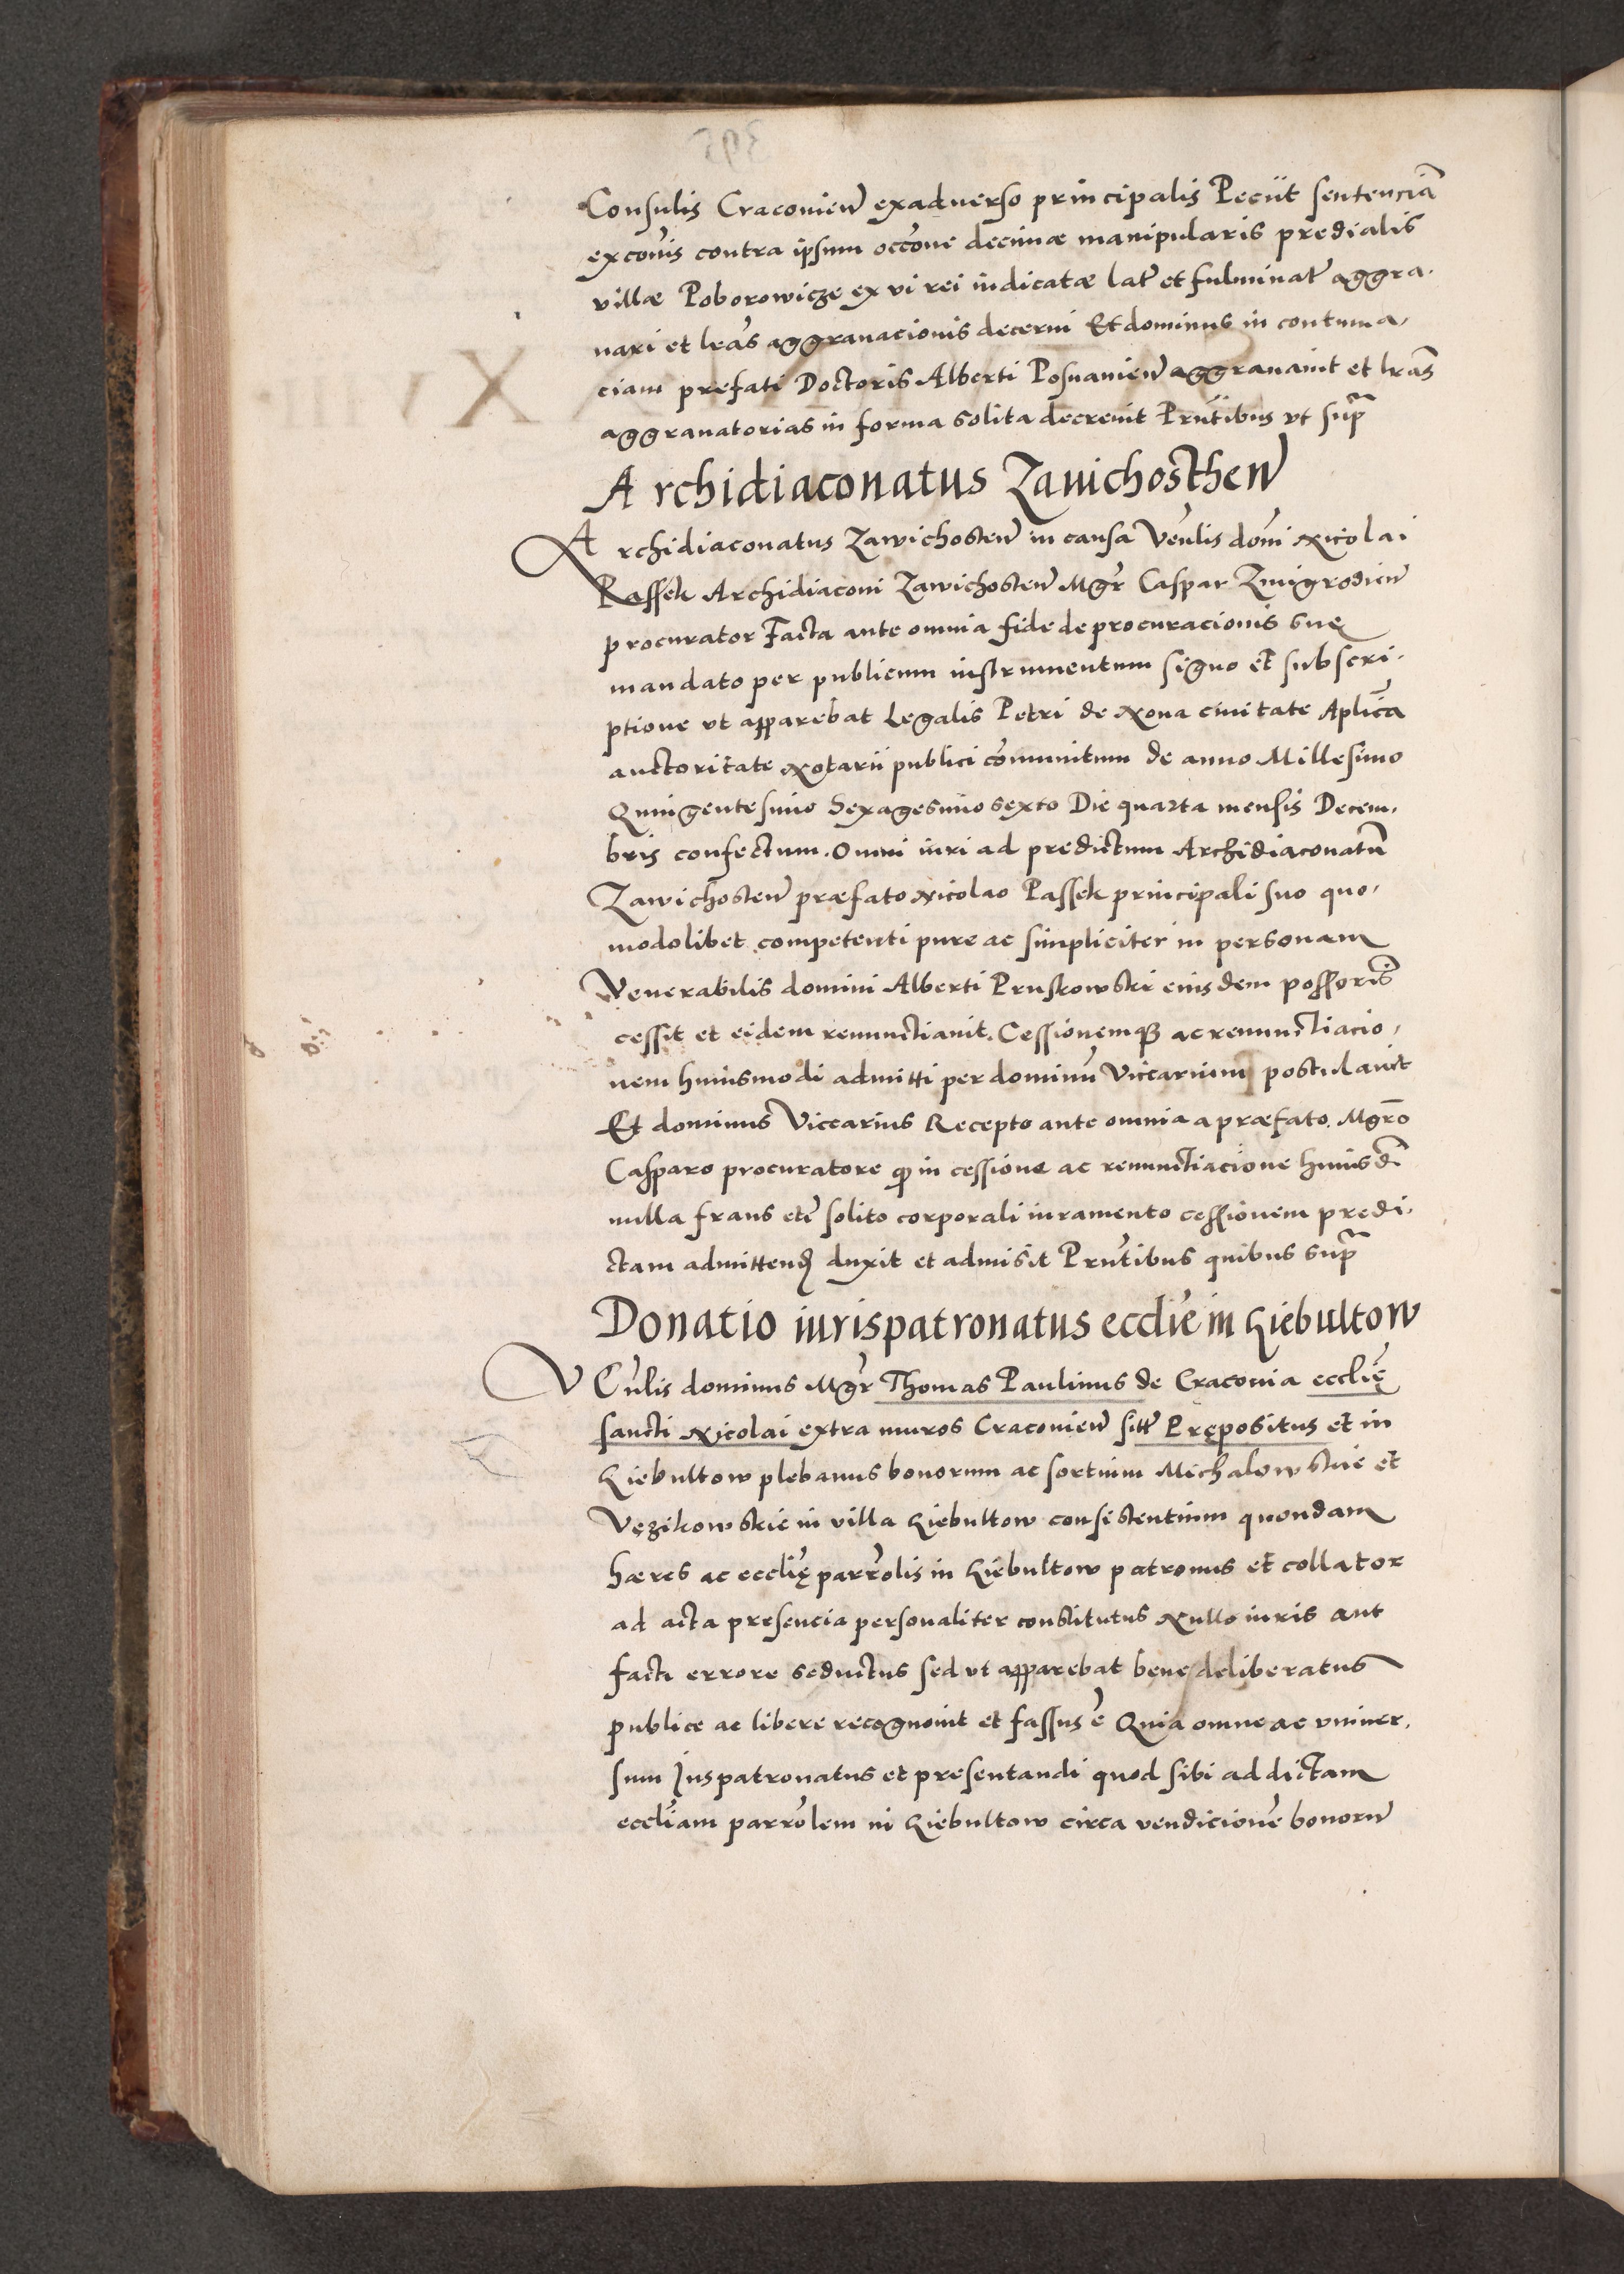 Consulis Cracovien̄ exadverso principalis Peciit sentenciā
excōnis contra ipsum occōne decimæ manipularis predialis
villæ Poborowicze ex vi rei iudicatæ latā et fulminatā aggra,
vari et lrās aggravacionis decerni Et dominus in contuma,
ciam prefati Doctoris Alberti Posnanien̄ aggravavit et lrās
aggravatorias in forma solita decrevit Pn̄tibus vt sup̄
Archidiaconatus Zavichosthen̄
Archidiaconatus Zawichosten̄ in causa Ven̄lis dom̄i Nicolai
Passek Archidiaconi Zawichosten̄ Mgr̄ Caspar Zmigrodien̄
procurator Facta ante omnia fide de procuracionis suę
mandato per publicum instrumentum signo et subscri,
ptione vt apparebat Legalis Petri de Nova civitate Aplicā
auctoritate Notarii publici cōmunitum de anno Millesimo
Quingentesimo Sexagesimo sexto Die quarta mensis Decem,
bris confectum. Omni iuri ad predictum Archidiaconatū
Zawichosten̄ præfato Nicolao Passek principali suo quo,
modolibet competenti pure ac simpliciter in personam
Venerabilis domini Alberti Pruskowski eiusdem possoris̄
cessit et eidem renunctiavit. Cessionemq̧ ac renunctiacio,
nem huiusmodi admitti per dominū Vicarium postulavit
Et dominus Vicearius Recepto ante omnia a præfato Mgrō
Casparo procuratore q̄ in cessione ac renunctiacione huiusd̄i
nulla fraus etc̄ solito corporali iuramento cessionem predi,
ctam admittend̄ duxit et admisit Pn̄tibus quibus sup̄
Donatio iurispatronatus ecclīe in Giebultow
VEn̄lis dominus Mgr̄ Thomas Paulinus de Cracovia ecclīę
sancti Nicolai extra muros Cracovien̄ sitt̄ Prępositus et in
Giebultow plebanus bonorum ac sortium Michalowskie et
Vęzikowskie in villa Giebultow consistentium quondam
hæres ac ecclīę parrōlis in Giebultow patronus et collator
ad acta presencia personaliter constitutus Nullo iuris aut
facti errore seductus sed vt apparebat bene deliberatus
publice ac libere recognovit et fassus ē Quia omne ac vniver,
sum Iuspatronatus et presentandi quod sibi ad dictam
ecclīam parrōlem in Giebultow circa vendicionē bonorū